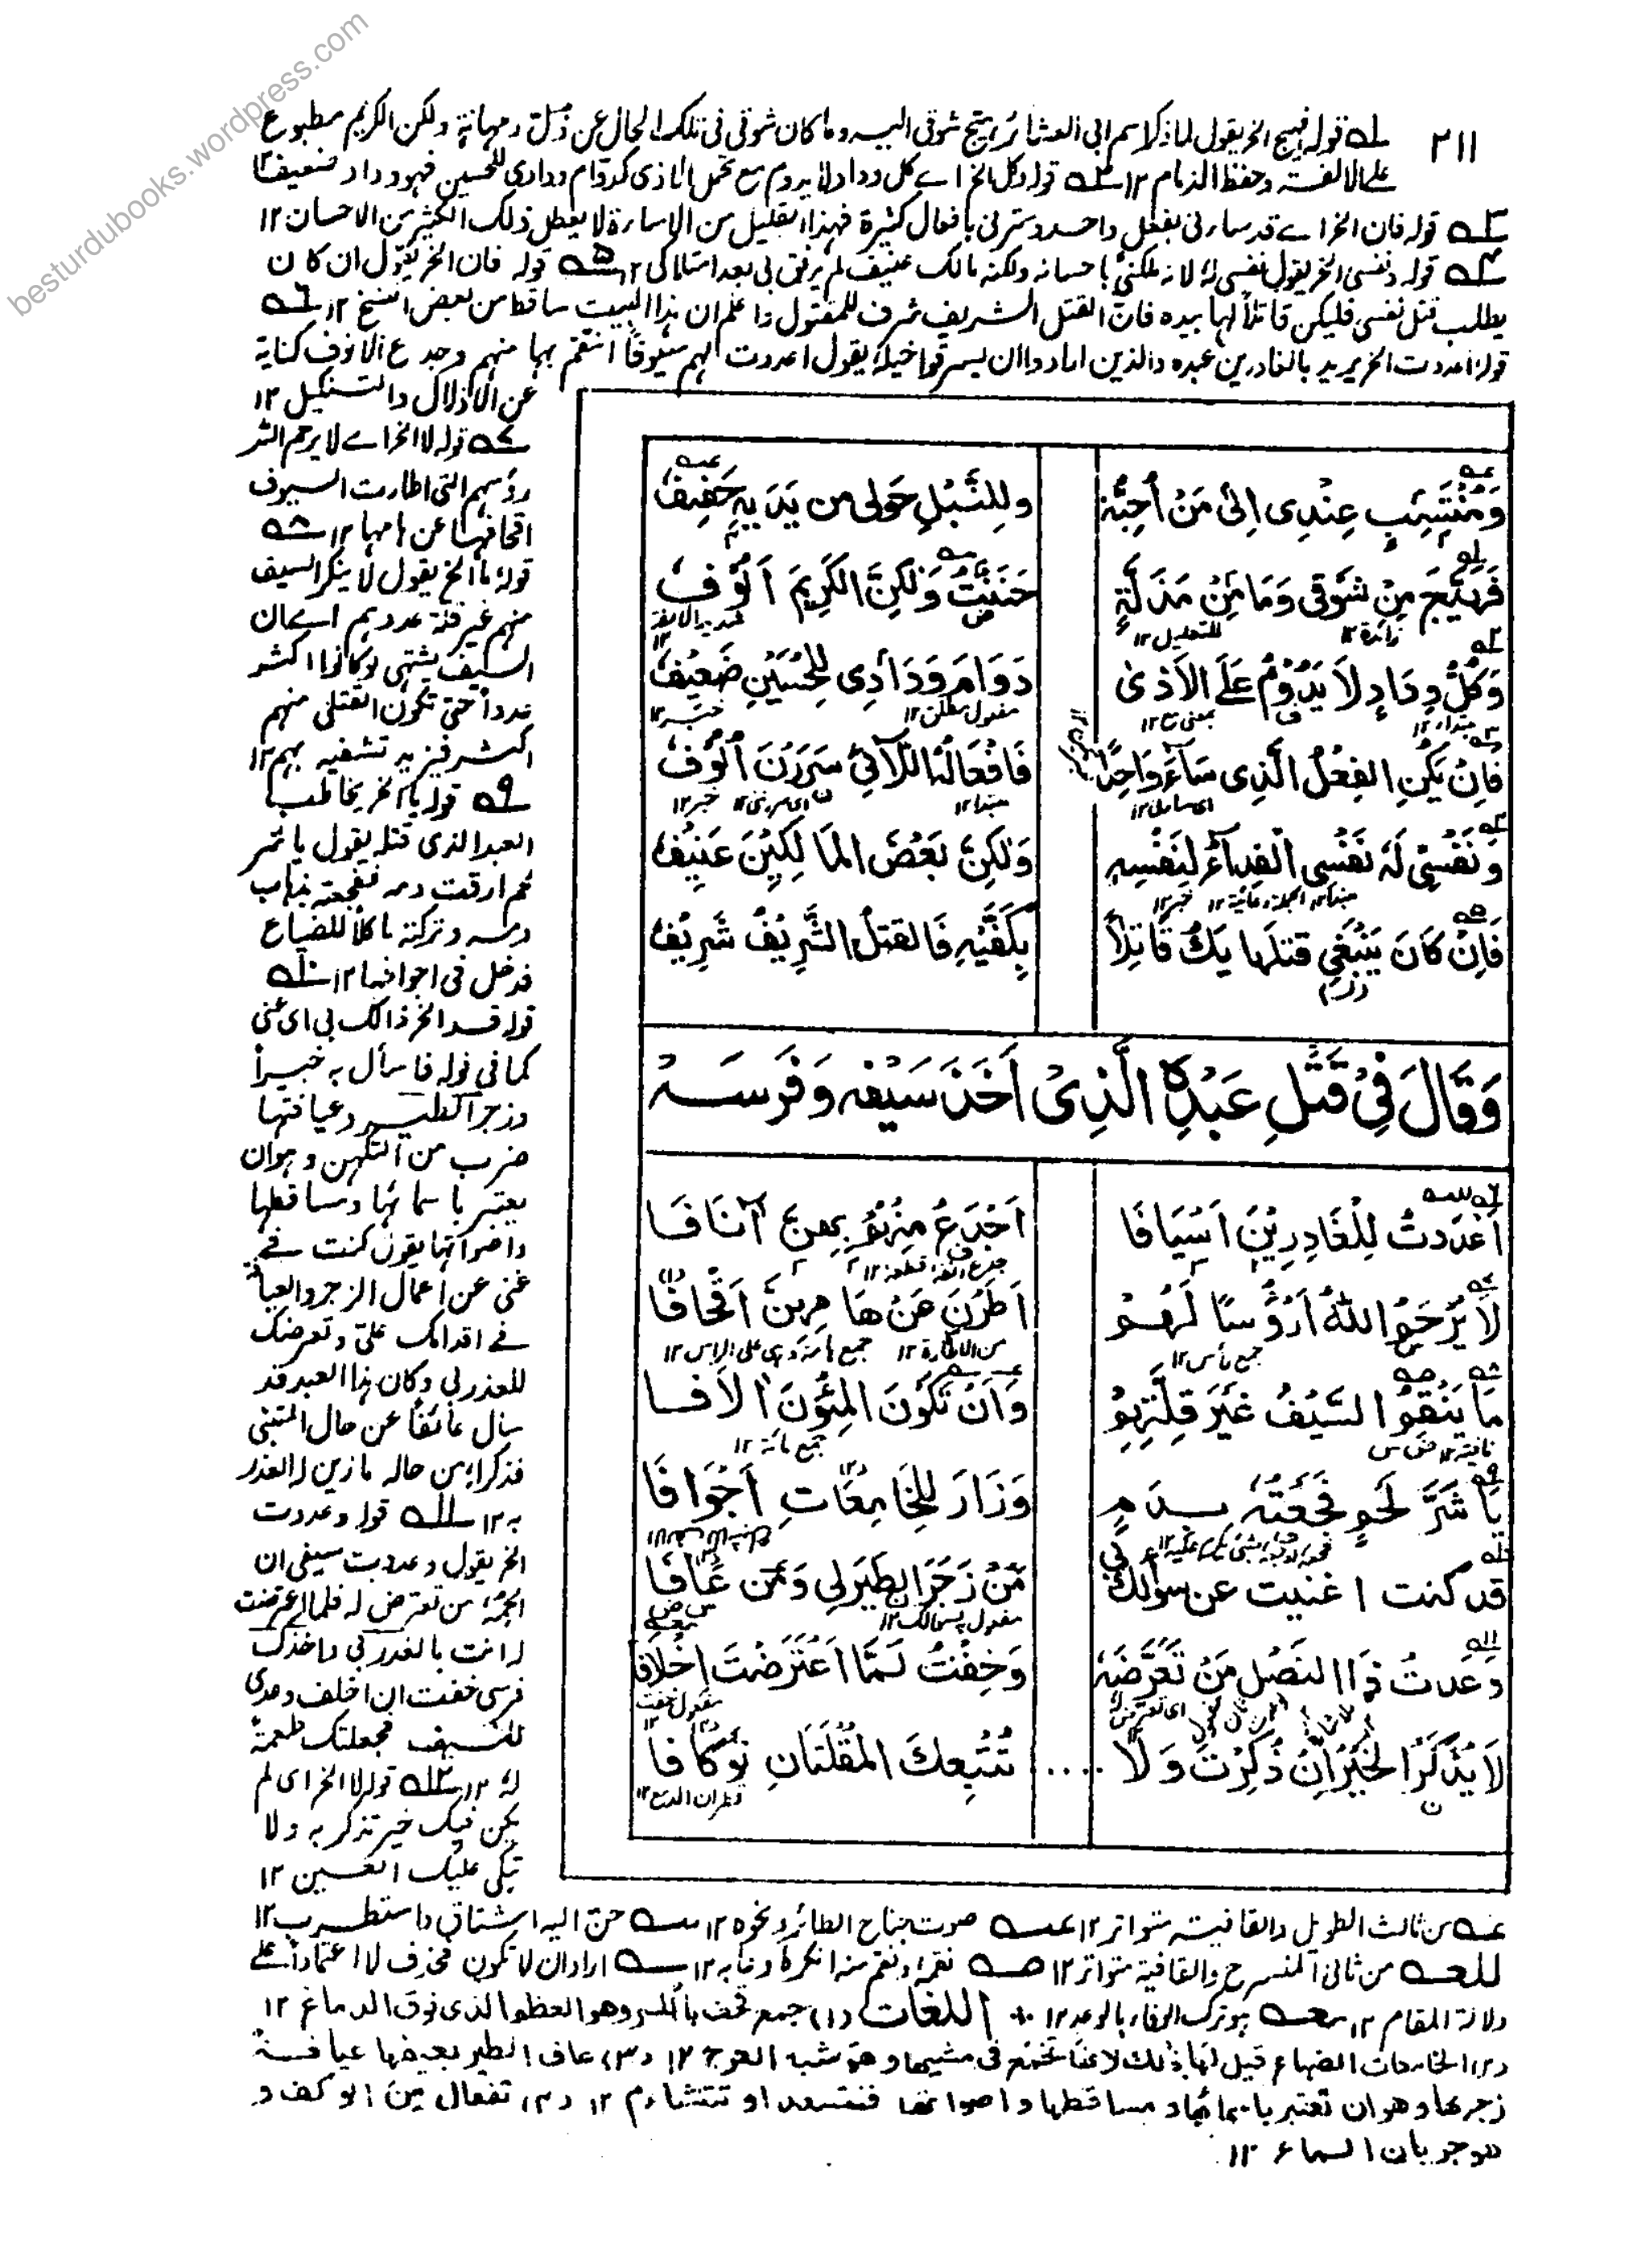 besturdubooks.wordpress.com
٢١١
له قوله فهيج الخ يقول لما ذكر اسم ابي العشائر هيج شوقي اليه وما كان شوقي في تلك الحال عن ذلة ومهانة ولكن الكريم مطبوع
على الالفة وحفظ الذمام ١٢ قوله وكل الخ اے كل وداد لا يدوم مع تحمل الاذى كدوام ودادى للحسين فهو وداد ضعيف ١٢
قوله فان الخ اے قد ساءنى بفعل واحد وسرنى بافعال كثيرة فهذا القليل من الاساءة لا يبطل ذلك الكثير من الاحسان ١٢
قوله ونفسى الخ يقول نفسى له لانه ملكنى باحسانه ولكنه مالك عنيف لم يرفق بى بعد امتلاكى ١٢ قوله فان الخ يقول ان كان
يطلب قتل نفسى فليكن قاتلا لها بيده فان القتل الشريف شرف للمقتول واعلم ان هذا البيت ساقط من بعض النسخ ١٢
قوله اعددت الخ يريد بالغادرين عبده والذين ارادوا ان يسرقوا خيله يقول اعددت لهم سيوفا انتقم بها منهم وجدع الانوف كناية
عن الاذلال والتنكيل ١٢
قوله لا الخ اے لا يرحم الله
رؤسهم التى اطارت السيوف
اقحافها عن هامها ١٢
قوله ما الخ يقول لا ينكر السيف
منهم غير قلة عددهم اے ان
السيف يشتهى لو كانوا اكثر
عددا حتى تكون القتلى منهم
اكثر فيزيد تشفيه بهم ١٢
قوله يا الخ يخاطب
العبد الذى قتله يقول يا شر
لحم ارقت دمه ففجعته بذهاب
دمه وتركته ماكلا للضباع
فدخل فى اجوافها ١٢
قوله قد الخ سؤالك بى اى عنى
كما فى قوله فاسأل به خبيرا
وزجر الطير وعيافتها
ضرب من التكهن وهو ان
يعتبر باسمائها ومساقطها
واصواتها يقول كنت فى
غنى عن اعمال الزجر والعيافة
فے اقدامك علىّ وتعرضك
للغدر بى وكان هذا العبد قد
سال عائفا عن حال المتنبى
فذكر له من حاله ما زين له الغدر
به ١٢ قوله وعدت
الخ يقول وعدت سيفى ان
من تعرض له فلما اعترضت
له انت بالغدر بى واخذك
فرسى خفت ان اخلف وعدى
للسيف فجعلتك طعمة
له ١٢ قوله لا الخ اى لم
يكن فيك خير تذكر به ولا
تبكى عليك العين ١٢
وَمُنْتَسِبٍ عِنْدِى اِلىٰ مَنْ اُحِبُّهٗ وللِنَّبْلِ حَولى من يَدَيهِ حَفِيفُ
فَهَيَّجَ مِنْ شَوْقى وَمَا مِنْ مَذَلَّةٍ حَنَنْتُ وَلٰكِنَّ الكَرِيمَ اَلُوفُ
زائدة ١٢ للتعليل ١٢ شديد الالفة
وَكُلُّ وِدَادٍ لاَ يَدُوْمُ عَلَى الاَذىٰ دَوَامَ وَدَادِى لِلحُسَيْنِ ضَعِيْفُ
مبتدا ١٢ بمعنى مع ١٢ مفعول مطلق ١٢ خبر ١٢
فَاِنْ يَكُنِ الفِعْلُ الَّذِى سَاءَ وَاحِدًا فَافْعَالُهُ اللَّائِىْ سَرَرْنَ اُلُوْفُ
مبتدا ١٢ خبر ١٢
وَنَفْسِىْ لَهٗ نَفْسِى الْفِدَاءُ لِنَفْسِهٖ وَلٰكِنَّ بَعْضَ المَالِكِيْنَ عَنِيْفُ
خبر ١٢
فَاِنْ كَانَ يَبْغِى قتلَها يَكُ قَاتِلاً بِكَفَّيْهِ فَالقتلُ الشَّرِيْفُ شَرِيْفُ
وَقَالَ فِىْ قَتْلِ عَبْدِهِ الَّذِىْ اَخَذَ سَيْفَهٗ وَفَرَسَهٗ
اَعْدَدتُ لِلْغَادِرِيْنَ اَسْيَافَا اَجْدَعُ مِنْهُمْ بِهِنَّ آنَافَا
جدع انفه قطعه ١٢
لاَ يَرْحَمُ اللّٰهُ اَرْؤُسًا لَهُمْ اَطَرْنَ عَنْ هَامِهِنَّ اَقْحَافَا
جمع رأس ١٢ من الاطارة ١٢ جمع هامة وهى على الراس ١٢
مَا يَنْقِمُ السَّيْفُ غَيْرَ قِلَّتِهِمْ وَاَنْ تَكُوْنَ المِئُوْنَ اٰلاَفا
نافية ١٢ جمع مائة ١٢
يَا شَرَّ لَحْمٍ فَجَعْتُهٗ بِدَمٍ وَزَارَ لِلخَامِعَاتِ اَجْوَافَا
قد كنت اغنيت عن سؤالك بى مَنْ زَجَرَ الطَيْرَ لِى وَمَن عَافَا
مفعول سوالك ١٢
وعَدتُ ذَا النَصْلِ مَنْ تَعَرَّضَهٗ وَخِفْتُ لَمَّا اعْتَرَضْتَ اِخْلاَفَا
مفعول خفت ١٢
لاَ يُذْكَرُ الخَيْرُ اِنْ ذُكِرْتَ وَلاَ .... تُتْبِعكَ المُقْلَتَانِ تَوْكَافَا
قطران الدمع ١٢
عه من ثالث الطويل والقافية متواتر ١٢ عه صوت جناح الطائر ونحوه ١٢ سه حن اليه اشتاق واستطرب ١٢
للعه من ثانى المنسرح والقافية متواتر ١٢ صه نقمه ونقم منه انكره وعابه ١٢ سه اراد ان لا تكون فحذف لا اعتمادا على
دلالة المقام ١٢ معه هو ترك الوفاء بالوعد ١٢ اللغات (١) جمع قحف بالكسر وهو العظم الذى فوق الدماغ ١٢
(٢) الخامعات الضباع قيل لها ذلك لانها تخمع فى مشيها وهو شبه العرج ١٢ (٣) عاف الطير يعيفها عيافة
زجرها وهو ان تعتبر باسمائها ومساقطها واصواتها فتتسعد او تتشاءم ١٢ (٤) تفعال من الوكف و
هو جريان الماء ١٢